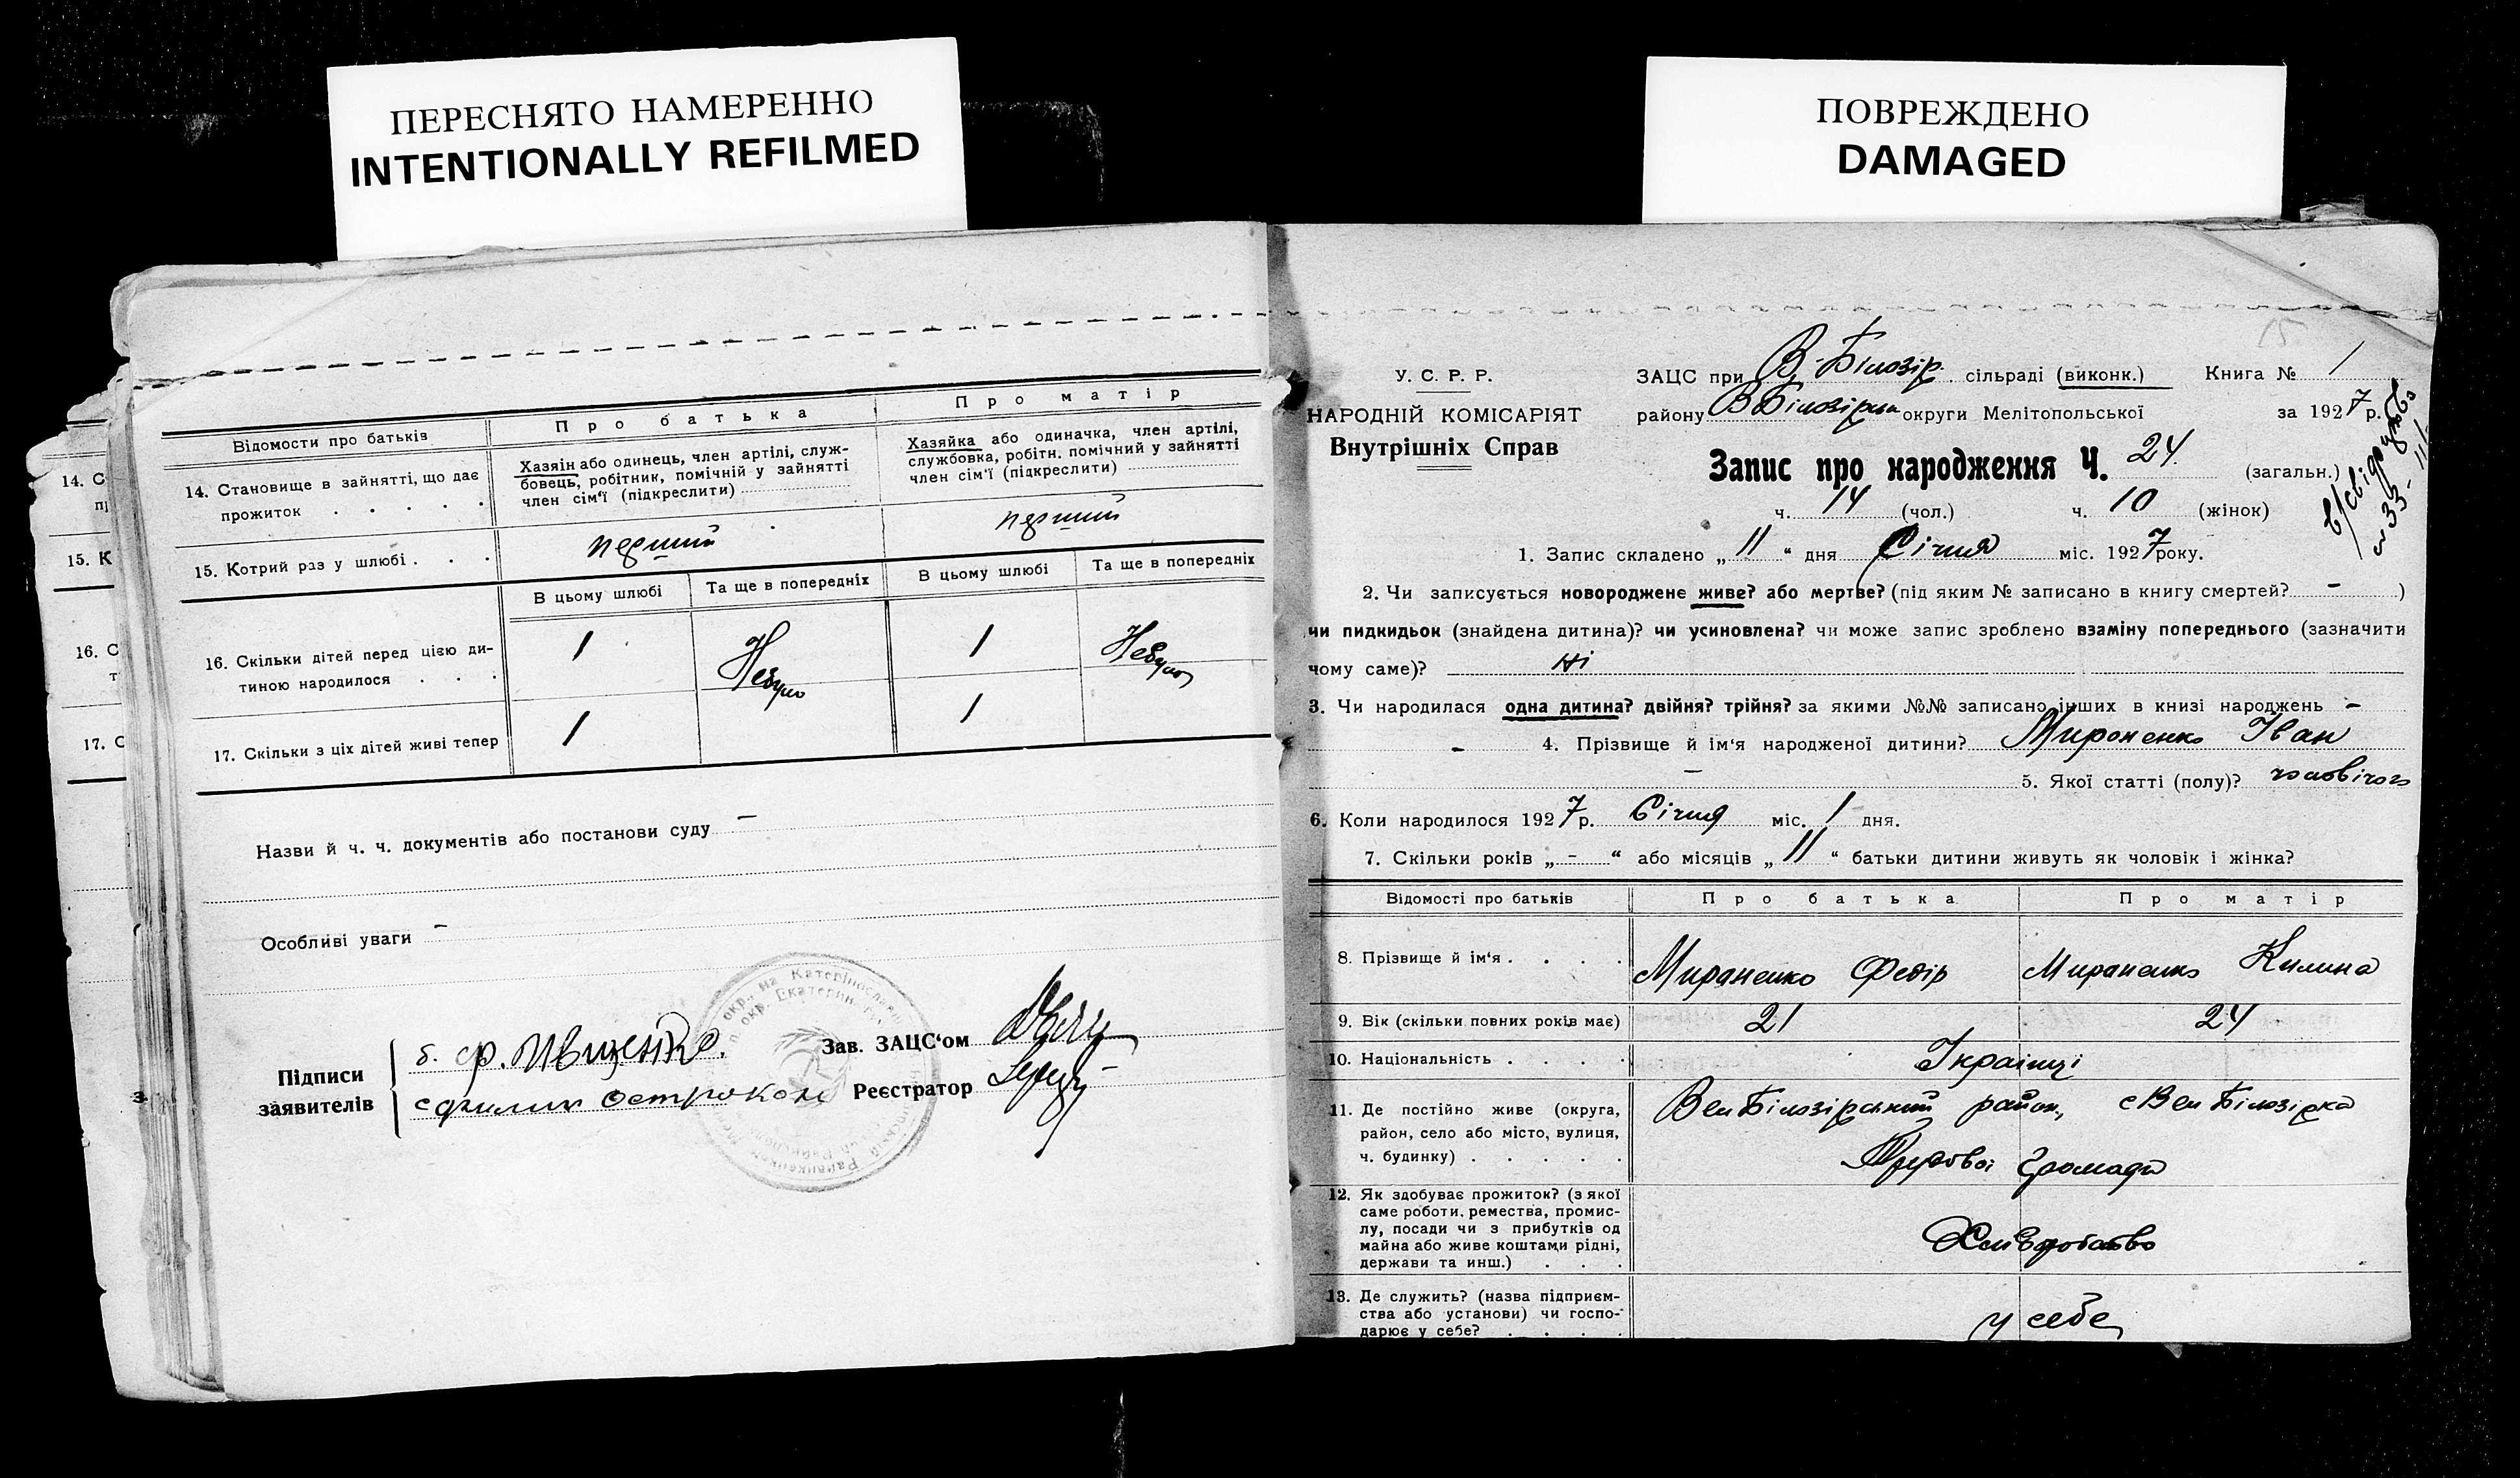 ПЕРЕСНЯТО НАМЕРЕННО
INTENTIONALLY REFILMED
ПОВРЕЖДЕНО
DAMAGED
Відомости про батьків
Про батька
Про матір
14. Становище в зайнятті, що дає
прожиток . . . . .
Хазяін або одинець, член артілі, служ-
бовець, робітник, помічній у зайнятті
член сім'ї (підкреслити)
Хазяйка або одиначка, член артілі,
службовка, робітн. помічний у зайнятті
член сім'ї (підкреслити)
15. Котрий раз у шлюбі . . .
перший
перший
В цьому шлюбі
Та ще в попередніх
В цьому шлюбі
Та ще в попередніх
16. Скільки дітей перед цією ди-
тиною народилося . . .
1
Небуло
1
Небуло
17. Скільки з ціх дітей живі тепер
1
1
Назви й ч. ч. документів або постанови суду —
Особливі уваги —
Підписи
заявителів
б. Ф. Ивщенко.
Зав. ЗАЦС'ом
Реєстратор
14. С
15. К
16. С
17. С
У. С. Р. Р.
НАРОДНІЙ КОМІСАРІЯТ
Внутрішніх Справ
ЗАЦС при В. Білозір. сільраді (виконк.) Книга № 1
району В Білозірськ округи Мелітопольської за 1927 р.
Запис про народження Ч. 24 (загальн.)
ч. 14 (чол.) ч. 10 (жінок)
1. Запис складено „ 11 “ дня Січня міс. 1927 року.
2. Чи записується новороджене живе? або мертве? (під яким № записано в книгу смертей? - )
чи пидкидьок (знайдена дитина)? чи усиновлена? чи може запис зроблено взаміну попереднього (зазначити
чому саме)? ні
3. Чи народилася одна дитина? двійня? трійня? за якими №№ записано інших в книзі народжень -
- 4. Прізвище й ім'я народженої дитини? Мироненко Іван
- 5. Якої статті (полу)? чоловічого
6. Коли народилось 1927 р. Січня міс. 1 дня.
7. Скільки років „ - “ або місяців „ 11 “ батьки дитини живуть як чоловік і жінка?
Відомості про батьків
Про батька
Про матір
8. Прізвище й ім'я . . . .
Мираненко Федір
Мираненко Килина
9. Вік (скільки повних років має)
21
24
10. Національність . . . .
Українці
11. Де постійно живе (округа,
район, село або місто, вулиця,
ч. будинку) . . . . .
Вел Білозірський район, с Вел Білозірка
Трудової громади
12. Як здобуває прожиток? (з якої
саме роботи, ремества, промис-
лу, посади чи з прибутків од
майна або живе коштами рідні,
держави та инш.) . . .
Хліборобство
13. Де служить? (назва підприєм-
ства або установи) чи госпо-
дарює у себе? . . . .
у себе